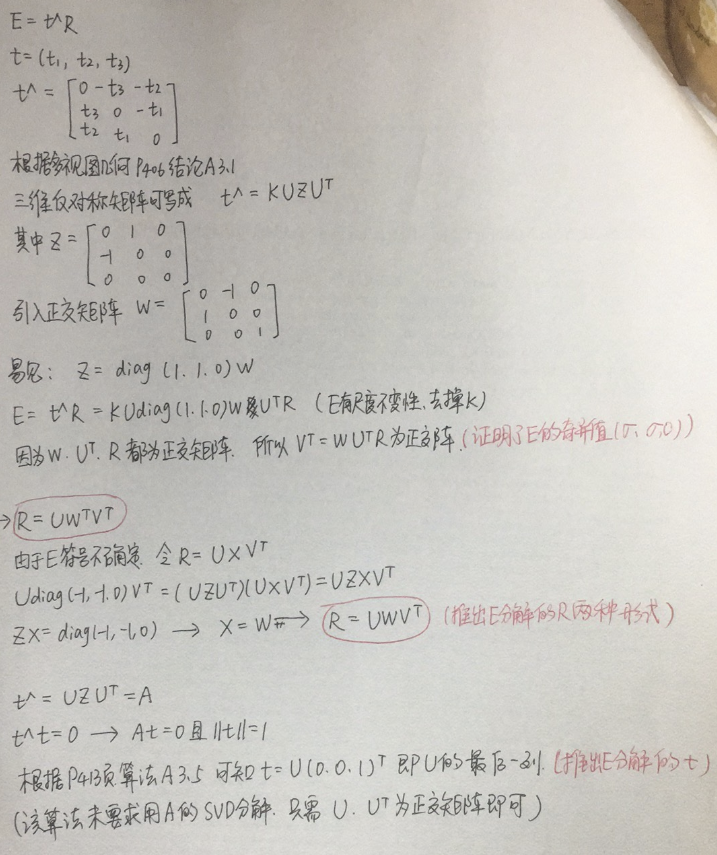 E = t^R
t = (t1, t2, t3)
t^ = [0 -t3 -t2
t3 0 -t1
t2 t1 0]
根据多视图几何 P406 结论A3.1
三维反对称矩阵可写成 t^ = KUZU^T
其中 Z = [0 1 0
-1 0 0
0 0 0]
引入正交矩阵 W = [0 -1 0
1 0 0
0 0 1]
易见: Z = diag (1.1.0) W
E = t^R = KUdiag(1.1.0)WU^TR (E有尺度不变性、去掉K)
因为W.U^T.R都为正交矩阵. 所以 V^T = WU^TR为正交阵. (证明了E的奇异值(σ, σ,0))
→ R = UW^TV^T
由于E符号不确定, 令 R = UXV^T
Udiag(-1,-1.0)V^T = (UZU^T)(UXV^T) = UZXV^T
ZX = diag(-1,-1,0) → X = W → R = UWV^T (推出E分解的R两种形式)
t^ = UZU^T = A
t^t = 0 → At = 0 且 ||t|| = 1
根据P413页算法A3.5 可知 t = U(0.0.1)^T 即U的最后一列. (推出E分解的t)
(该算法未要求用A的SVD分解. 只需 U. U^T为正交矩阵即可)